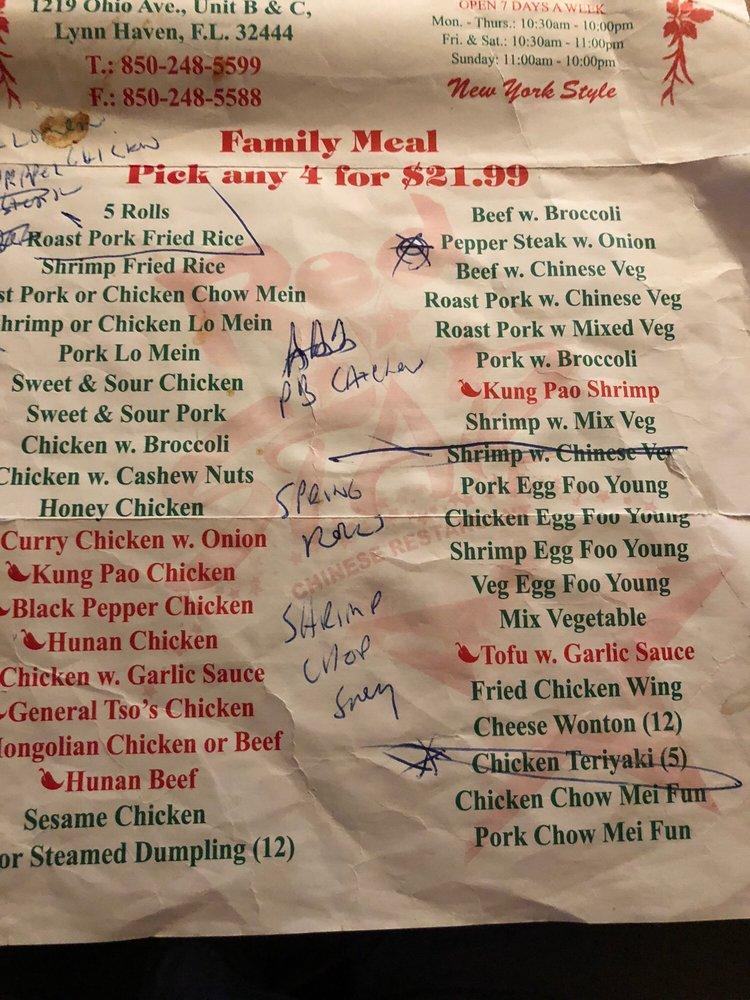 1219 Ohio Ave., Unit B & C,
Lynn Haven, F.L. 32444
T.: 850-248-5599
F.: 850-248-5588
OPEN 7 DAYS A WEEK
Mon. - Thurs.: 10:30am - 10:00pm
Fri. & Sat.: 10:30am - 11:00pm
Sunday: 11:00am - 10:00pm
New York Style
CHICKEN
Family Meal
Pick any 4 for $21.99
5 Rolls
Roast Pork Fried Rice
Shrimp Fried Rice
st Pork or Chicken Chow Mein
hrimp or Chicken Lo Mein
Pork Lo Mein
Sweet & Sour Chicken
Sweet & Sour Pork
Chicken w. Broccoli
Chicken w. Cashew Nuts
Honey Chicken
Curry Chicken w. Onion
Kung Pao Chicken
Black Pepper Chicken
Hunan Chicken
Chicken w. Garlic Sauce
General Tso's Chicken
ongolian Chicken or Beef
Hunan Beef
Sesame Chicken
or Steamed Dumpling (12)
ADD
PB CHICKEN
SPRING
ROLLS
SHRIMP
CHOP
SUEY
CHINESE RESTAURANT
Beef w. Broccoli
Pepper Steak w. Onion
Beef w. Chinese Veg
Roast Pork w. Chinese Veg
Roast Pork w Mixed Veg
Pork w. Broccoli
Kung Pao Shrimp
Shrimp w. Mix Veg
Shrimp w. Chinese Veg
Pork Egg Foo Young
Chicken Egg Foo Young
Shrimp Egg Foo Young
Veg Egg Foo Young
Mix Vegetable
Tofu w. Garlic Sauce
Fried Chicken Wing
Cheese Wonton (12)
Chicken Teriyaki (5)
Chicken Chow Mei Fun
Pork Chow Mei Fun